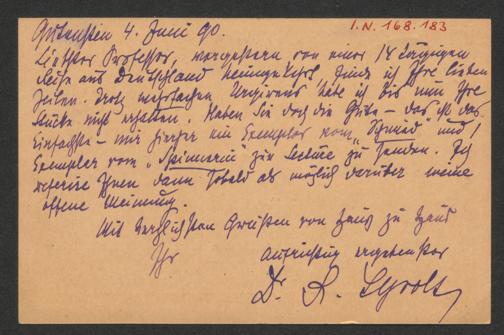 I.N. 168.183
Gutenstein 4. Juni 90.
Liebster Professor, vorgestern von einer 14 tägigen
Reise aus Deutschland heimgekehrt, finde ich Ihre lieben
Zeilen. Trotz mehrfachen Urgirens habe ich bis nun Ihre
Stücke nicht erhalten. Haben Sie doch die Güte – das ist das
Einfachste – mir hierher ein Exemplar vom „Schmied" und 1
Exemplar vom „ " zur Lecture zu senden. Ich
referire Ihnen dann sobald als möglich darüber meine
offene Meinung.
Mit herzlichsten Grüssen von Haus zu Haus
Ihr
aufrichtig ergebenster
Dr. R. Tyrolt